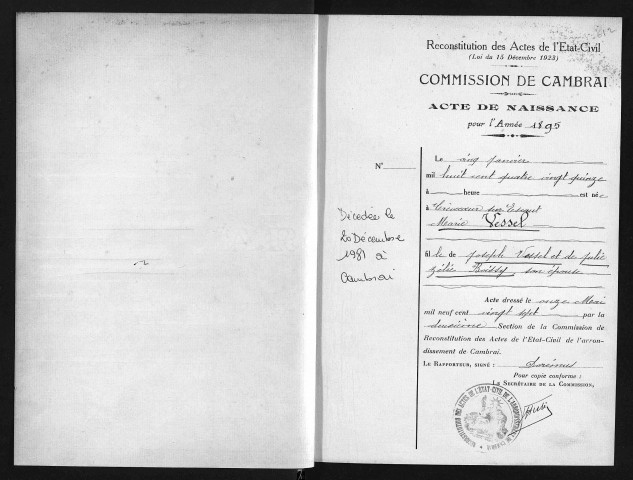 Reconstitution des Actes de l'Etat-Civil
(Loi du 15 Décembre 1923)
COMMISSION DE CAMBRAI
ACTE DE NAISSANCE
pour l'Année 1895
N°
Le cinq janvier
mil huit cent quatre vingt quinze
à heure est née
à Crèvecoeur sur Escaut
Marie Vessel
fille de Joseph Vessel et de Julie
Zélie Boissy son épouse
Acte dressé le onze Mai
mil neuf cent vingt sept et par la
deuxième Section de la Commission de
Reconstitution des Actes de l'Etat-Civil de l'arron-
dissement de Cambrai.
LE RAPPORTEUR, SIGNÉ :
Pour copie conforme :
LE SECRÉTAIRE DE LA COMMISSION,
Décédée le
20 Décembre
1981 à
Cambrai